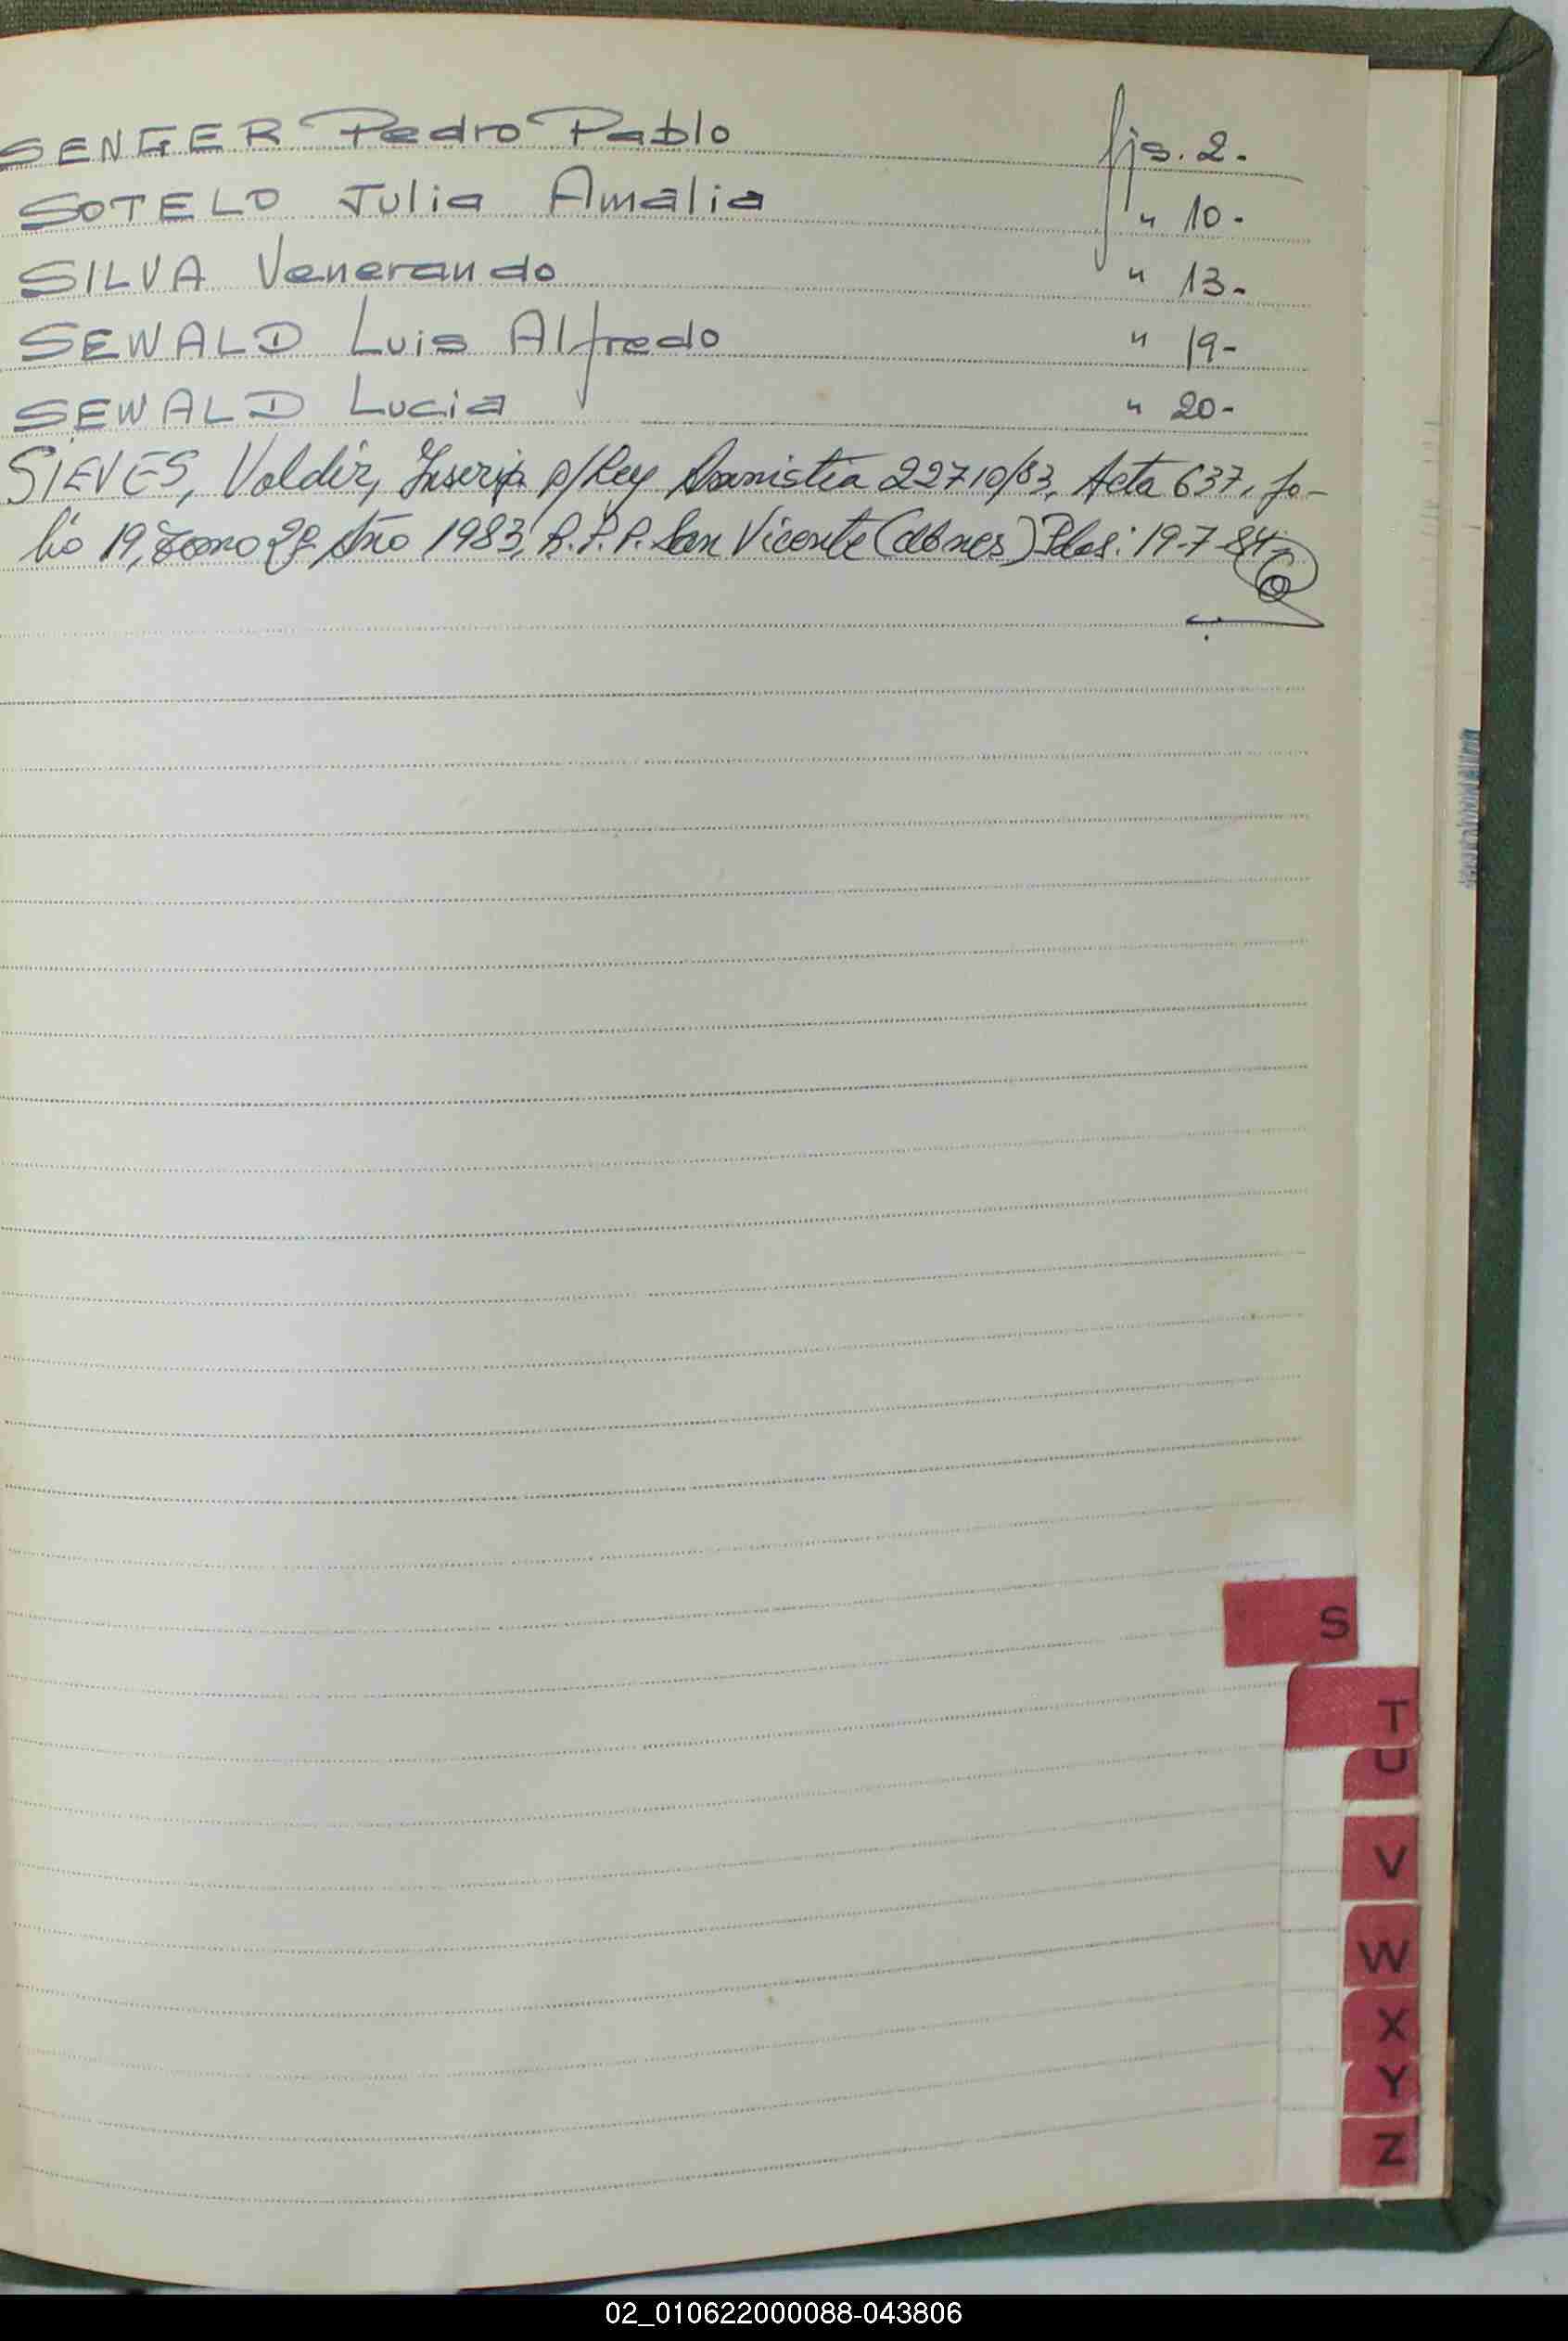 SENGER Pedro Pablo fjs. 2.
SOTELO Julia Amalia " 10-
SILVA Venerando " 13-
SEWALD Luis Alfredo " 19-
SEWALD Lucia " 20-
SIEVES, Valdir, Inscrip. p/Ley Amnistia 22710/83, Acta 637, fo-
lio 19, Tomo 2º Año 1983, R.P.P. San Vicente (Mnes) Pdas: 19-7-84
S
T
U
V
W
X
Y
Z
02_010622000088-043806